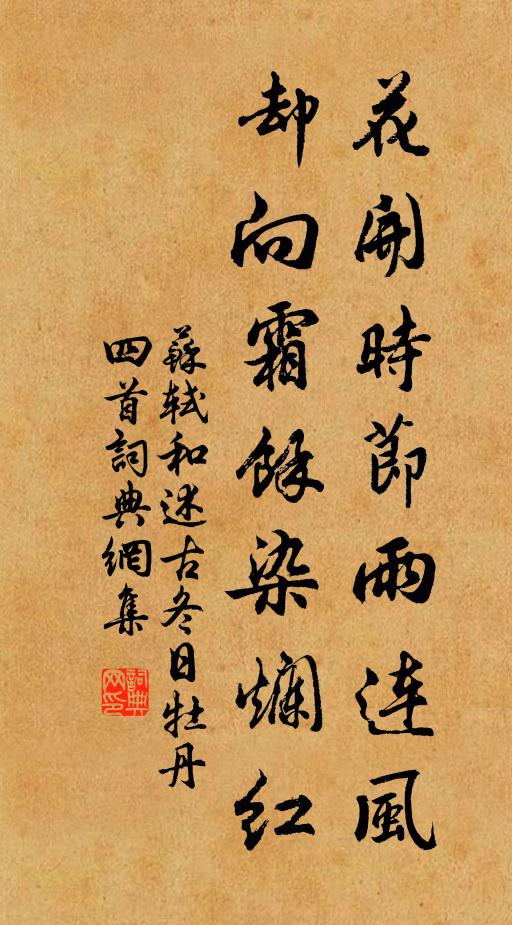 花開時節雨連風
却向霜餘染爛紅
蘇軾和述古冬日牡丹
四首詞典網集
詞典
网印